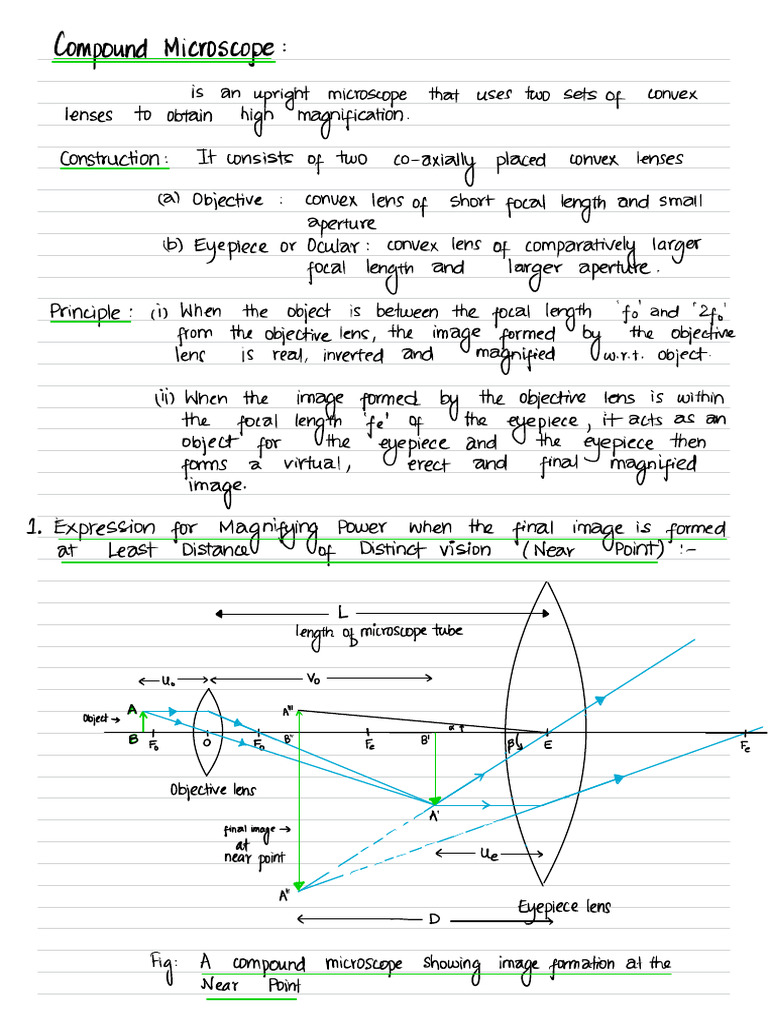 Compound Microscope :
is an upright microscope that uses two sets of convex
lenses to obtain high magnification.
Construction: It consists of two co-axially placed convex lenses
(a) Objective : convex lens of short focal length and small
aperture
(b) Eyepiece or Ocular : convex lens of comparatively larger
focal length and larger aperture.
Principle : (i) When the object is between the focal length 'fo' and '2fo'
from the objective lens, the image formed by the objective
lens is real, inverted and magnified w.r.t. object.
(ii) When the image formed by the objective lens is within
the focal length 'fe' of the eyepiece, it acts as an
object for the eyepiece and the eyepiece then
forms a virtual, erect and final magnified
image.
1. Expression for Magnifying Power when the final image is formed
at Least Distance of Distinct vision (Near Point) :-
L
length of microscope tube
uo
vo
A
A'''
Object →
α
B
Fo
O
Fo
B''
Fe
B'
β
E
Fe
Objective lens
A'
final image →
at
near point
ue
A''
Eyepiece lens
D
Fig: A compound microscope showing image formation at the
Near Point